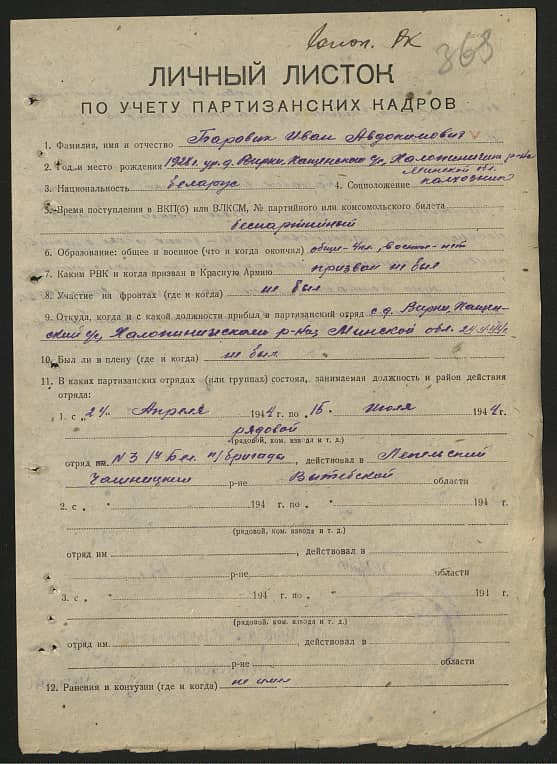 368
ЛИЧНЫЙ ЛИСТОК
ПО УЧЕТУ ПАРТИЗАНСКИХ КАДРОВ
1. Фамилия, имя и отчество Таровик Иван Авдокимович
2. Год и место рождения 1928г. ур. д. Вирки, Хащенского с/с, Холопинич р-на
Минской обл.
3. Национальность беларус 4. Соцположение колхозник
5. Время поступления в ВКП(б) или ВЛКСМ, № партийного или комсомольского билета
беспартийный
6. Образование: общее и военное (что и когда окончил) общ-4кл, воен-нет
7. Каким РВК и когда призван в Красную Армию призван не был
8. Участие на фронтах (где и когда) не был
9. Откуда, когда и с какой должности прибыл в партизанский отряд с д. Вирки, Хащен-
ский с/с, Холопиничского р-на, Минской обл. 24.4.44г
10. Был ли в плену (где и когда) не был
11. В каких партизанских отрядах (или группах) состоял, занимаемая должность и район действия
отряда:
1. с 24 Апреля 1944 г. по 15 Июля 1944 г.
рядовой
(рядовой, ком. взвода и т. д.)
отряд им. №3 1й Бел. п/бригада, действовал в Лепельский
Чашницкий р-не Витебской области
2. с " 194 г. по " 194 г.
(рядовой, ком. взвода и т. д.)
отряд им , действовал в
р-не области
3. с " 194 г. по " 194 г.
(рядовой, ком. взвода и т. д.)
отряд им. , действовал в
р-не области
12. Ранения и контузии (где и когда) не имел